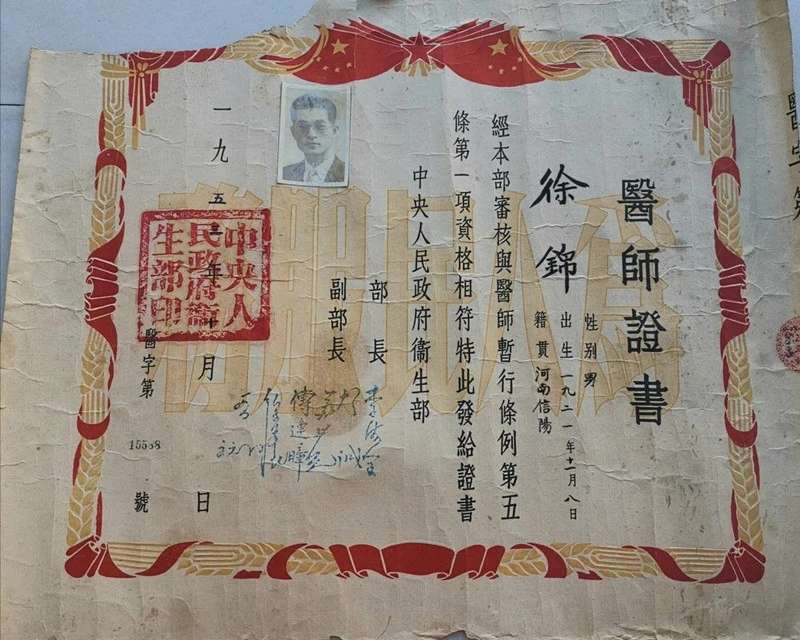 醫字第
醫師證書
徐錦
性別男
出生一九二一年十一月八日
籍貫河南信陽
經本部審核與醫師暫行條例第五
條第一項資格相符特此發給證書
中央人民政府衞生部
部長
李德全
副部長
傅連暲
一九五 年 月 日
中央人民政府衞生部印
醫字第 號
為人民服務